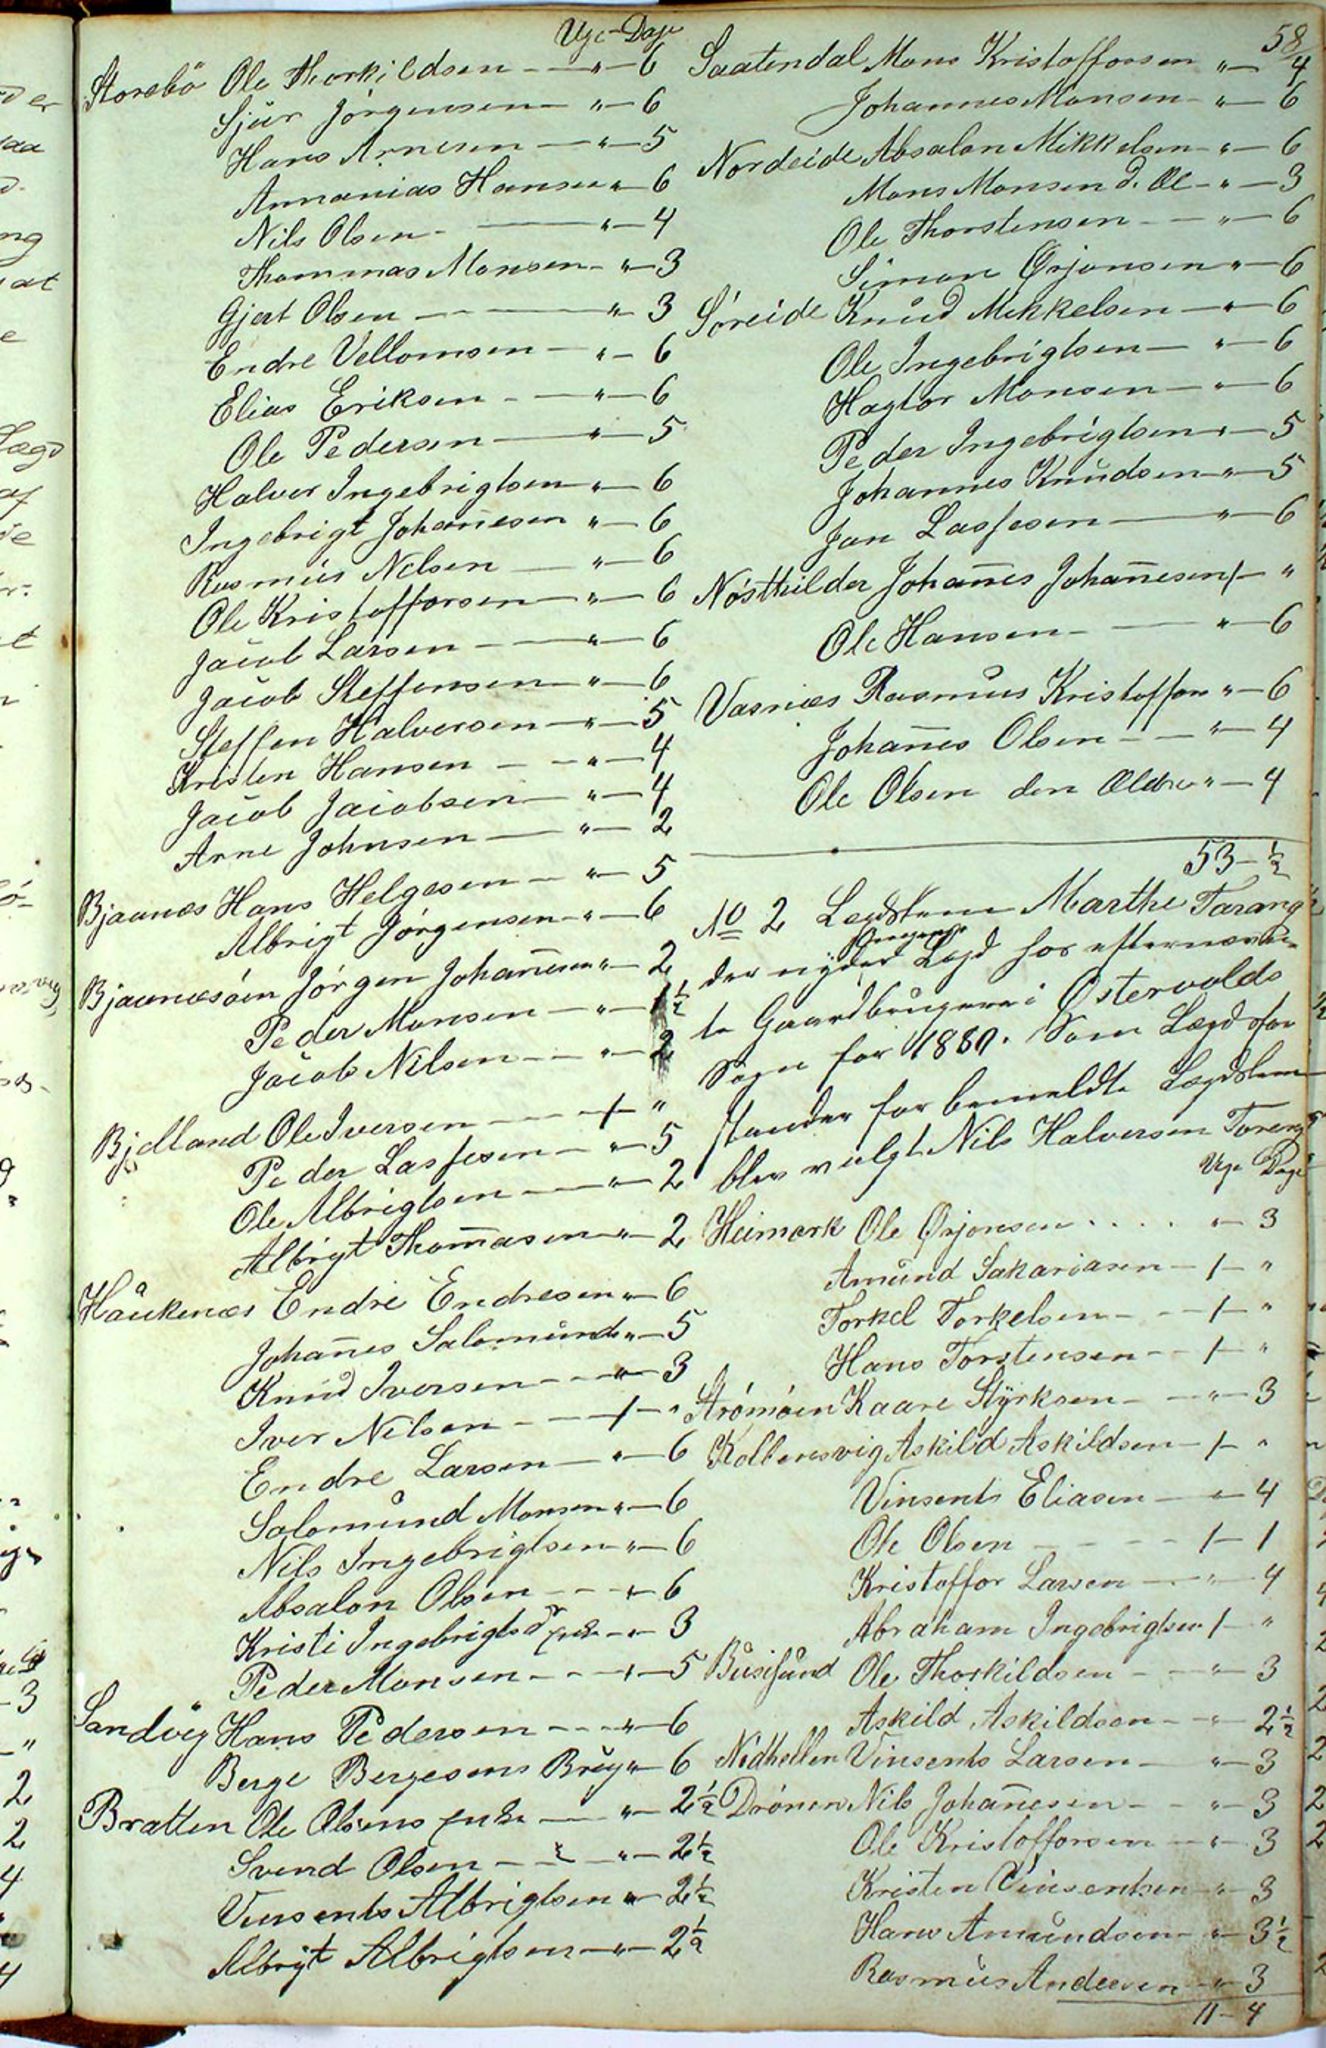 58
Uge-Dage
Storebö Ole Thorkildsen — " — 6
Sjur Jörgensen — " — 6
Hans Arnesen — " — 5
Annanias Hansen " — 6
Nils Olsen — " — 4
Thommas Monsen — " — 3
Gjert Olsen — " — 3
Endre Vellomsen — " — 6
Elias Eriksen — " — 6
Ole Pedersen — " — 5
Halver Ingebrigtsen " — 6
Ingebrigt Johan̄esen " — 6
Rasmus Nilsen — " — 6
Ole Kristoffersen — " — 6
Jacob Larsen — " — 6
Jacob Steffensen — " — 6
Steffen Halversen — " — 5
Kristen Hansen — " — 4
Jacob Jacobsen — " — 4
Arne Johnsen — " — 2
Bjaanæs Hans Helgesen — " — 5
Albrigt Jörgensen — " — 6
Bjaanæsöen Jörgen Johan̄esen " — 2
Peder Monsen — " — 1½
Jacob Nilsen — " — 2
Bjelland Ole Iversen — 1 — "
Peder Lassesen — " — 5
Ole Albrigtsen — " — 2
Albrigt Thom̄asen — " — 2
Haukenæs Endre Endresen " — 6
Johan̄es Salomunds " — 5
Knud Iversen — " — 3
Iver Nilsen — 1 — "
Endre Larsen — " — 6
Salomund Monsen " — 6
Nils Ingebrigtsen " — 6
Absalon Olsen — " — 6
Kristi Ingebrigtsd enke — " — 3
Peder Monsen — " — 5
Sandvig Hans Pedersen — " — 6
Berge Bergesens Brug " — 6
Bratten Ole Olsens enke — " — 2½
Svend Olsen — " — 2½
Vinsents Albrigtsen " — 2½
Albrigt Albrigtsen — " — 2½
Saatendal Mons Kristoffersen " — 4
Johannes Monsen — " — 6
Nordeide Absalon Mikkelsen — " — 6
Mons Monsen d. Æl — " — 3
Ole Thorstensen — " — 6
Simon Ørjansen " — 6
Söreide Knud Mikkelsen — " — 6
Ole Ingebrigtsen — " — 6
Hagtor Monsen — " — 6
Peder Ingebrigtsen " — 5
Johannes Knudsen " — 5
Jan Lassesen — " — 6
Nösthilder Johan̄es Johan̄esen 1 — "
Ole Hansen — " — 6
Vasnæs Rasmus Kristoffersen " — 6
Johan̄es Olsen — " — 4
Ole Olsen den Ældre " — 4
53 - ½
No 2 Lægdslem Marthe Tarang
der nyder Lægd hos efternævn-
te Gaardbrugere i Østervolds
Sogn for 1880. Som Lægdsfor
stander for bemeldte Lægdslem
blev valgt Nils Halversen Tareng
Uge Dage
Heimark Ole Ørjansen .... " — 3
Amund Sakariasen — 1 — "
Torkel Torkelsen — 1 — "
Hans Torstensen — 1 — "
Strömöen Kaare Styrksen — " — 3
Kolbensvig Askild Askildsen — 1 — "
Vinsents Eliasen — " — 4
Ole Olsen — 1 — 1
Kristoffor Larsen — " — 4
Abraham Ingebrigtsen 1 — "
Busesund Ole Thorkildsen — " — 3
Askild Askildsen — " — 2½
Nedhellen Vinsents Larsen — " — 3
Drönen Nils Johan̄esen — " — 3
Ole Kristoffersen — " — 3
Kristen Vinsentsen — " — 3
Hans Amundsen — " — 3½
Rasmus Andersen — " — 3
11 - 4